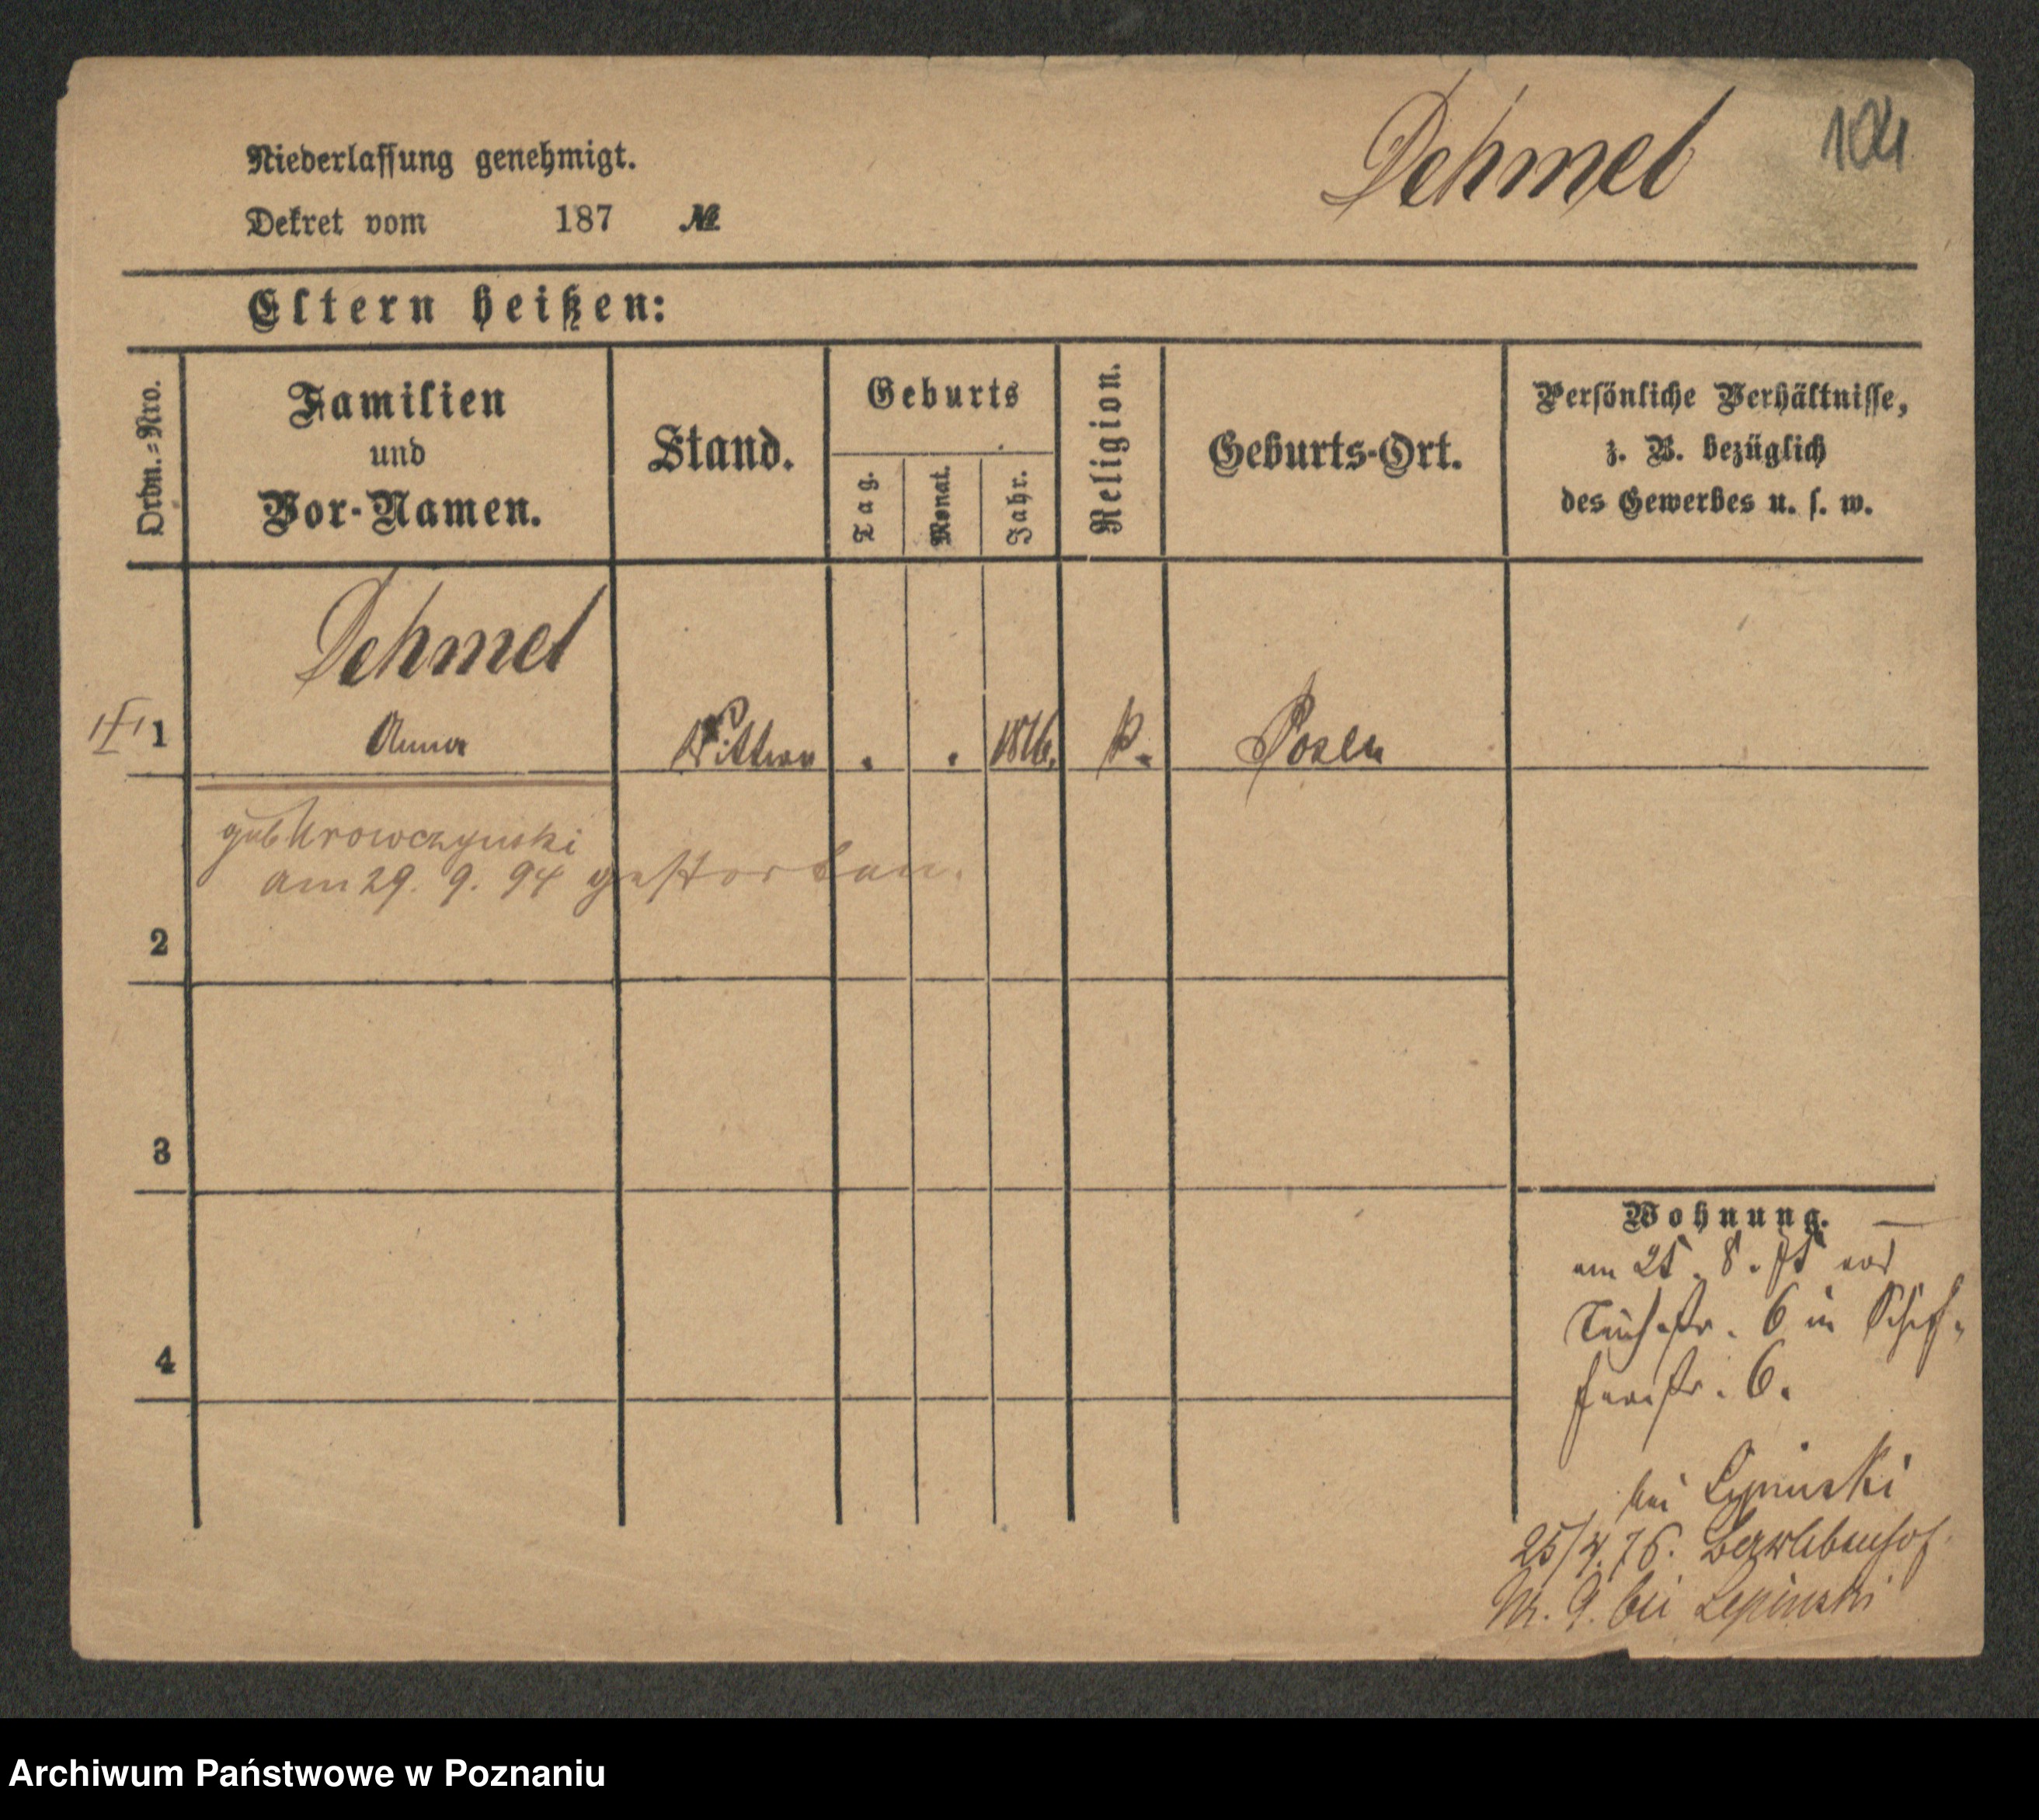 Dehmel
104
Niederlassung genehmigt.
Dekret vom 187 №
Eltern heißen:
Ordn.=Nro.
Familien
und
Vor-Namen.
Stand.
Geburts
Tag.
Monat.
Jahr.
Religion.
Geburts-Ort.
Persönliche Verhältnisse,
z. B. bezüglich
des Gewerbes u. s. w.
Dehmel
1 Anna Wittwe . . 1816. k. Posen
geb Urowczynski
am 29. 9. 94 gestorben.
2
3
4
Wohnung.
am 25. 8. 75 von
6 in Schif-
ferstr. 6.
bei Lepinski
25/4. 76. Berwlebenhof
Nr. 9. bei Lepinski
Archiwum Państwowe w Poznaniu